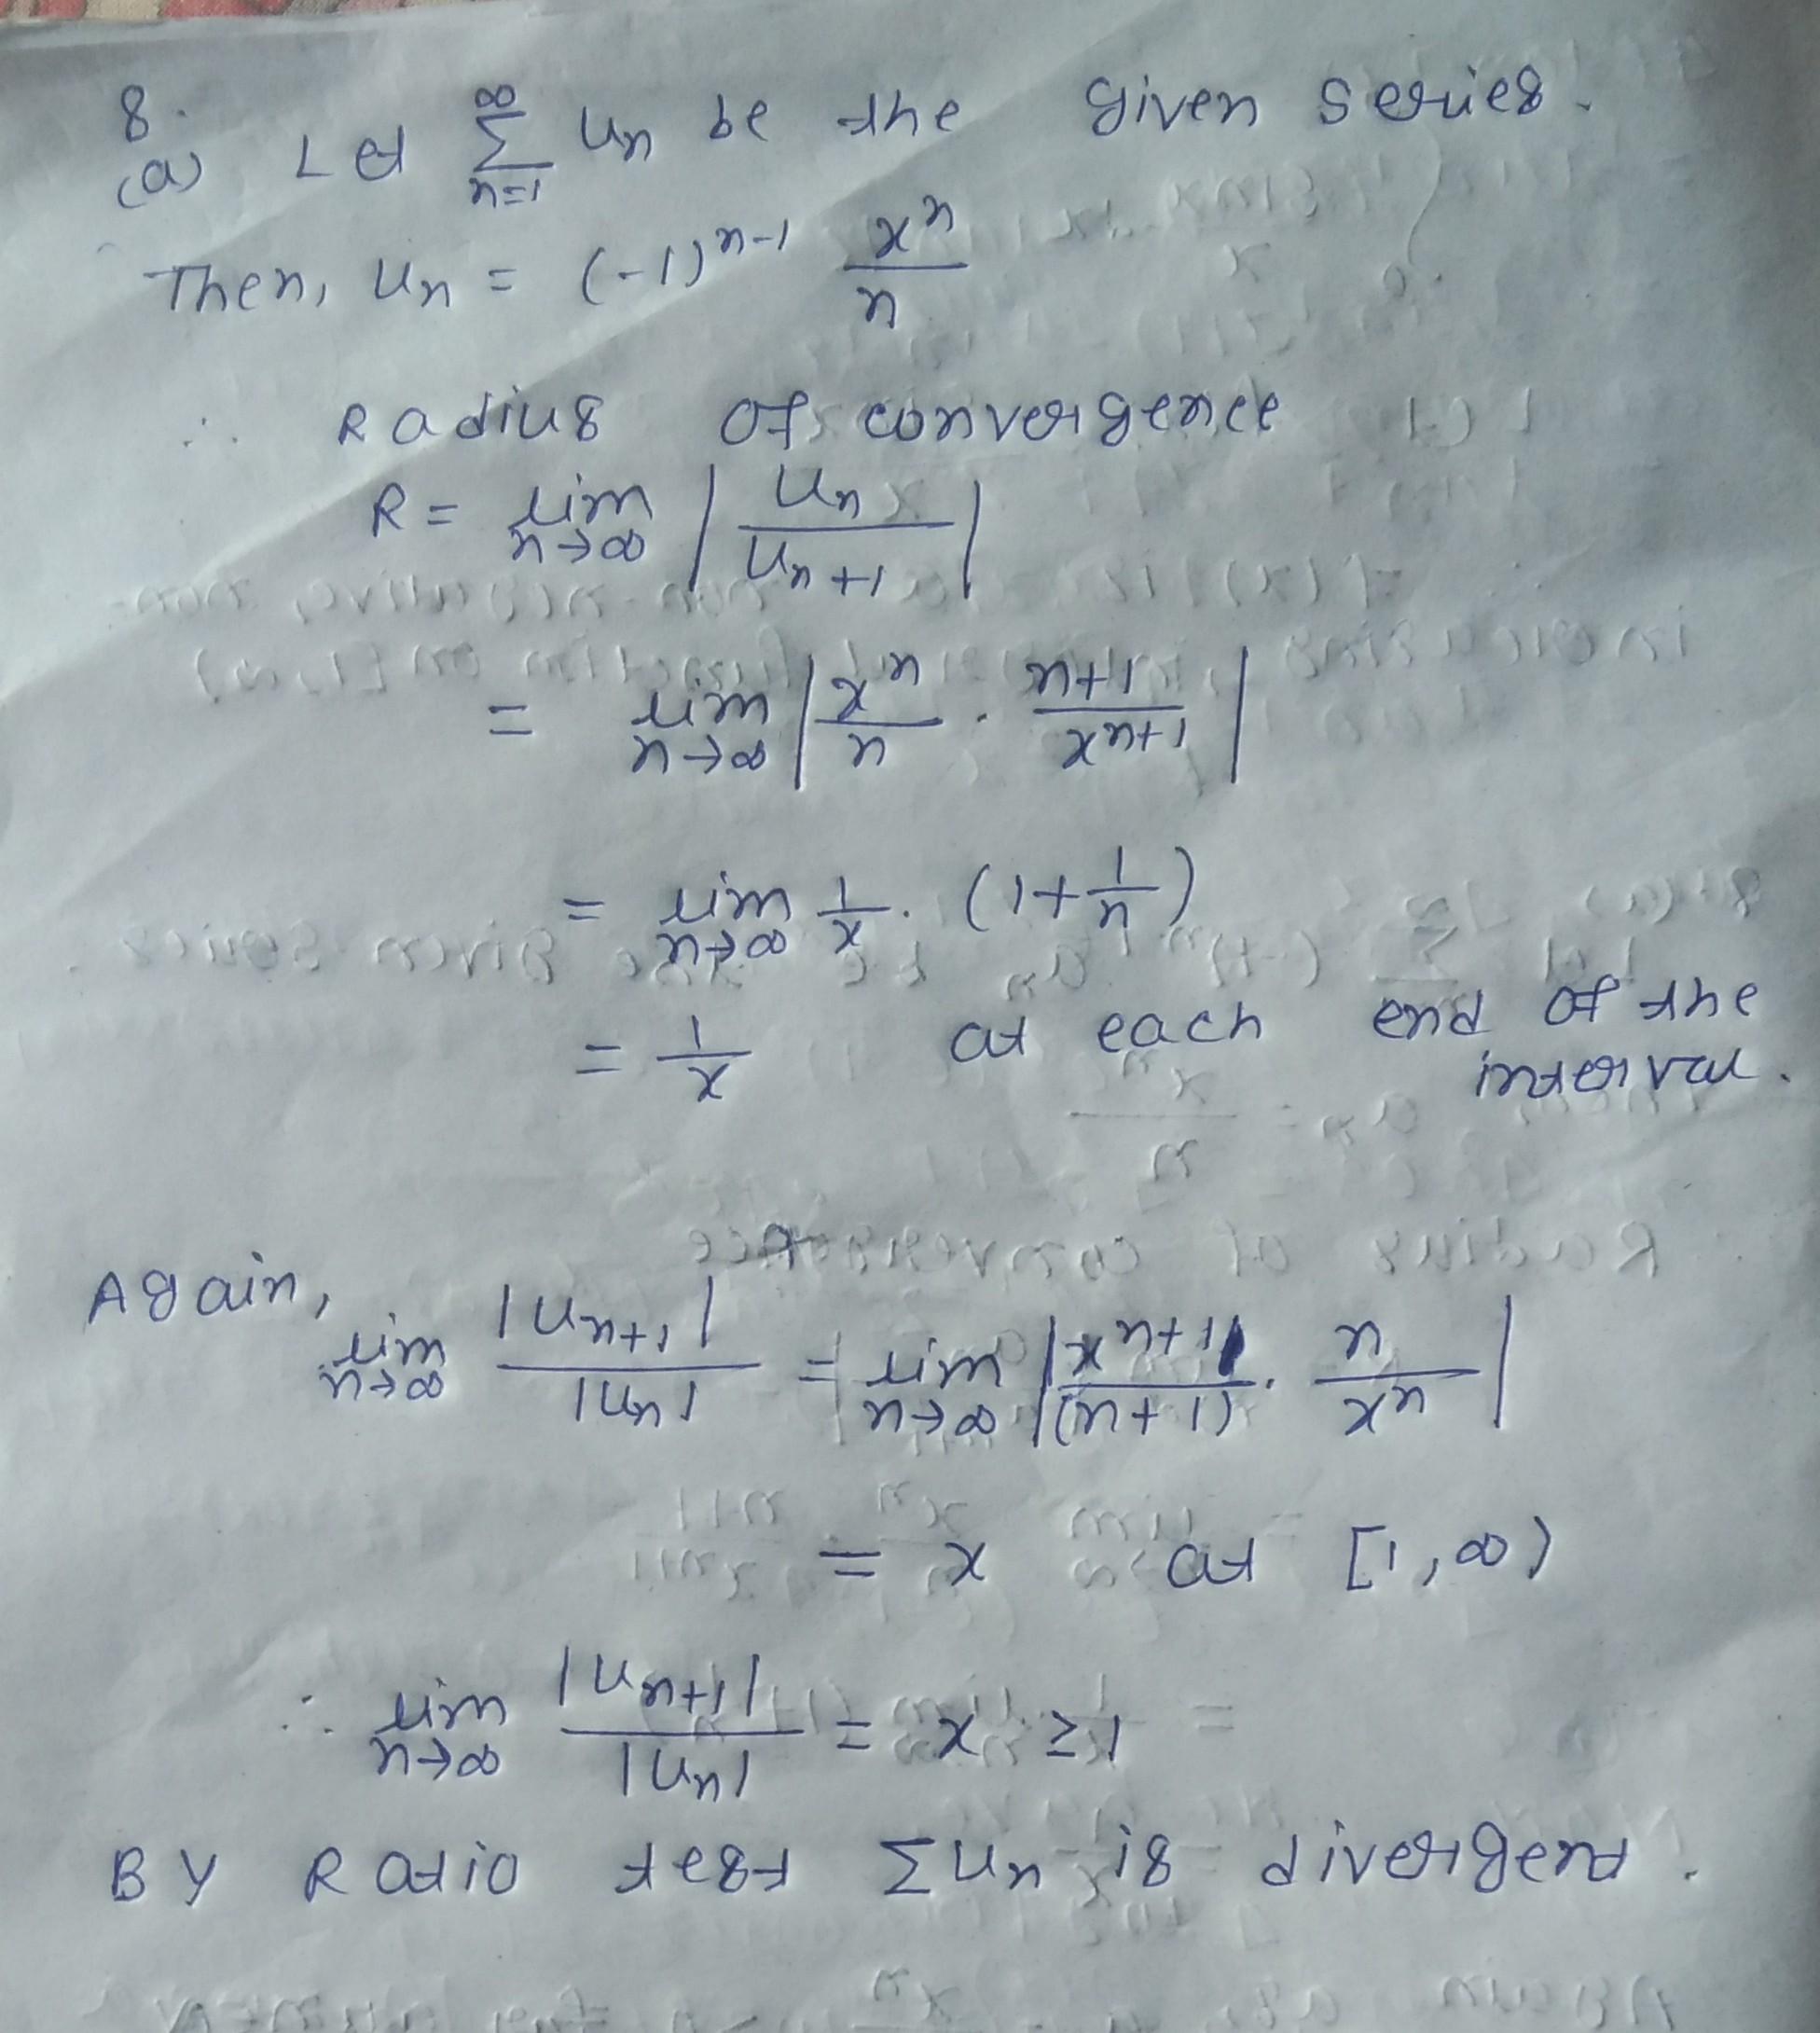 8.
(a) Let ∞∑n=1 Un be the given series.
Then, Un = (-1)^{n-1} x^n/n
∴ Radius of convergence
R = lim n→∞ | Un / Un+1 |
= lim n→∞ | x^n/n · n+1/x^{n+1} |
= lim n→∞ 1/x · (1 + 1/n)
= 1/x at each end of the
interval.
Again,
lim n→∞ |Un+1| / |Un| = lim n→∞ | x^{n+1}/(n+1) · n/x^n |
= x at [1, ∞)
∴ lim n→∞ |Un+1| / |Un| = x ≥ 1
By Ratio test ∑Un is divergent.